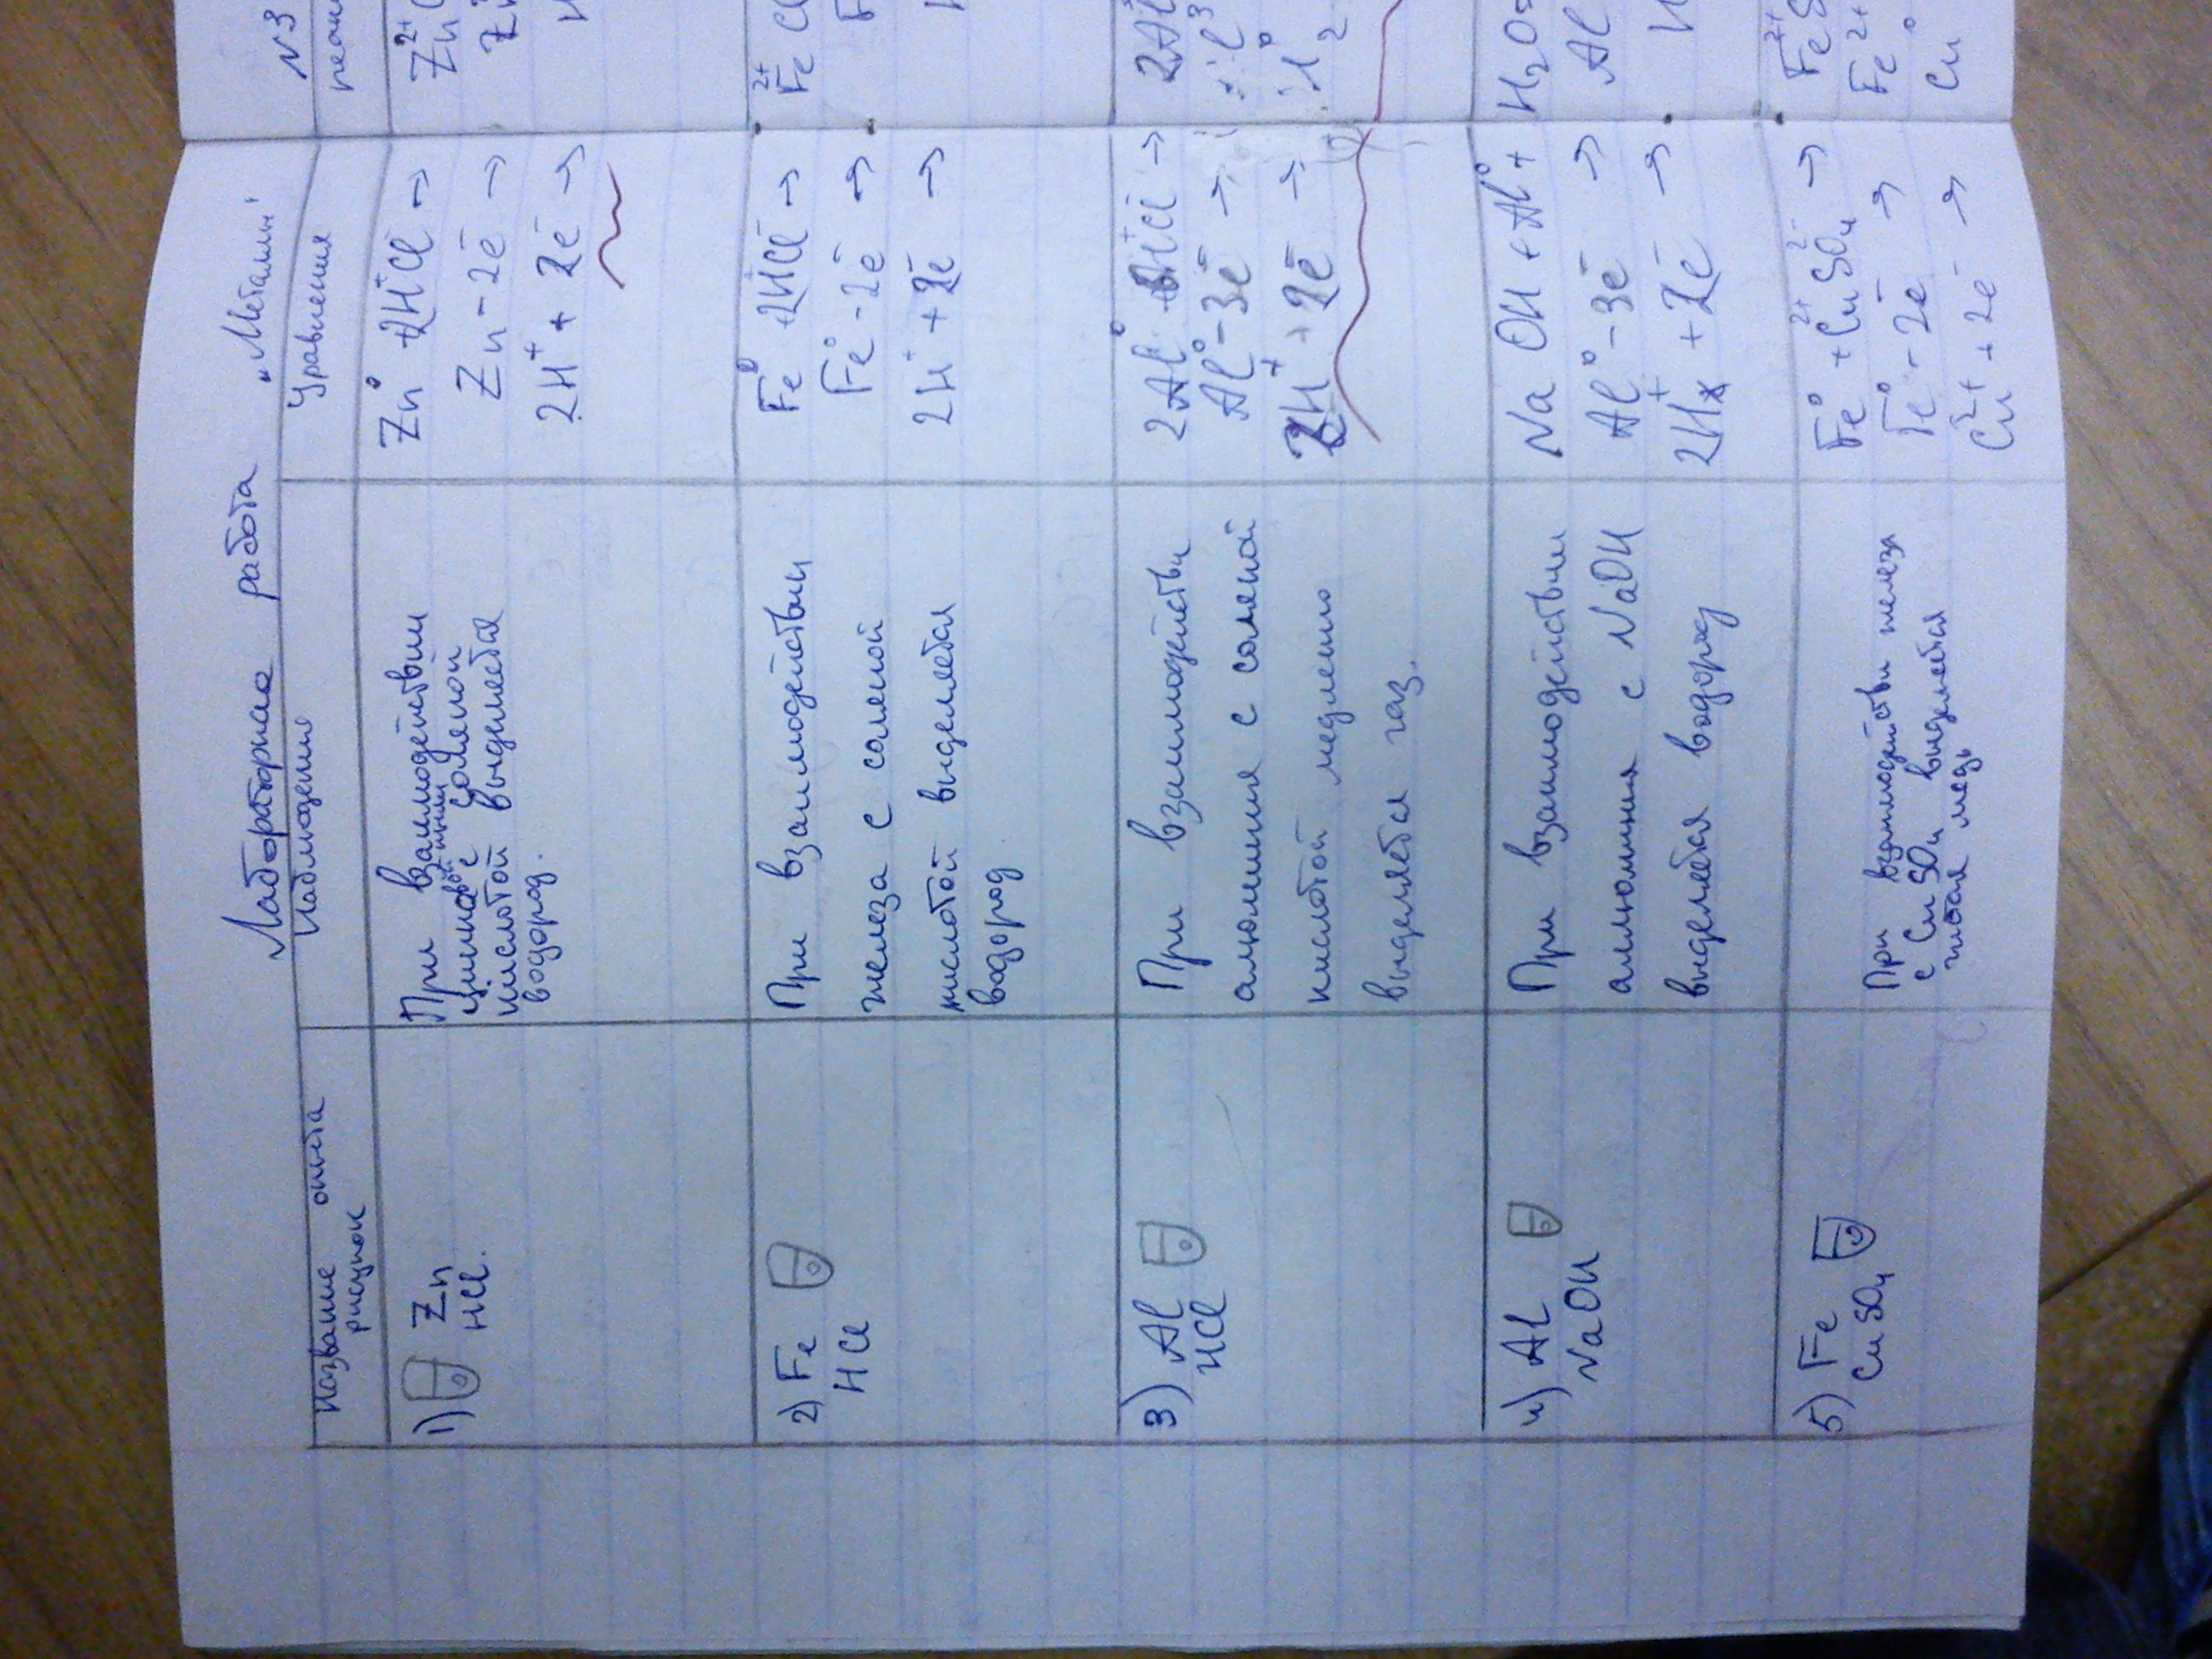 Лабораторная работа "Металлы"
N3
Название опыта
рисунок
Наблюдения
Уравнения
1) Zn
HCl.
При взаимодействии
с соляной
кислотой выделяется
водород.
Zn⁰ + 2H⁺Cl →
Zn - 2ē →
2H⁺ + 2ē →
Zn²⁺
2) Fe
HCl
При взаимодействии
железа с соляной
кислотой выделяется
водород
Fe⁰ + 2HCl →
Fe⁰ - 2ē →
2H⁺ + 2ē →
Fe²⁺Cl
3) Al
HCl
При взаимодействии
алюминия с соляной
кислотой медленно
выделяется газ.
2Al⁰ HCl →
Al⁰ - 3ē →
2H⁺ + 2ē →
2Al
4) Al
NaOH
При взаимодействии
аллюминия с NaOH
выделяется водород
NaOH + Al⁰ + H₂O
Al⁰ - 3ē →
2H⁺ + 2ē →
Al
5) Fe
CuSO₄
При взаимодействи железа
с CuSO₄ выделяется
чистая медь
Fe⁰ + Cu²⁺SO₄²⁻ →
Fe⁰ - 2ē →
Cu²⁺ + 2ē →
Fe²⁺S
Fe²⁺
Cu⁰